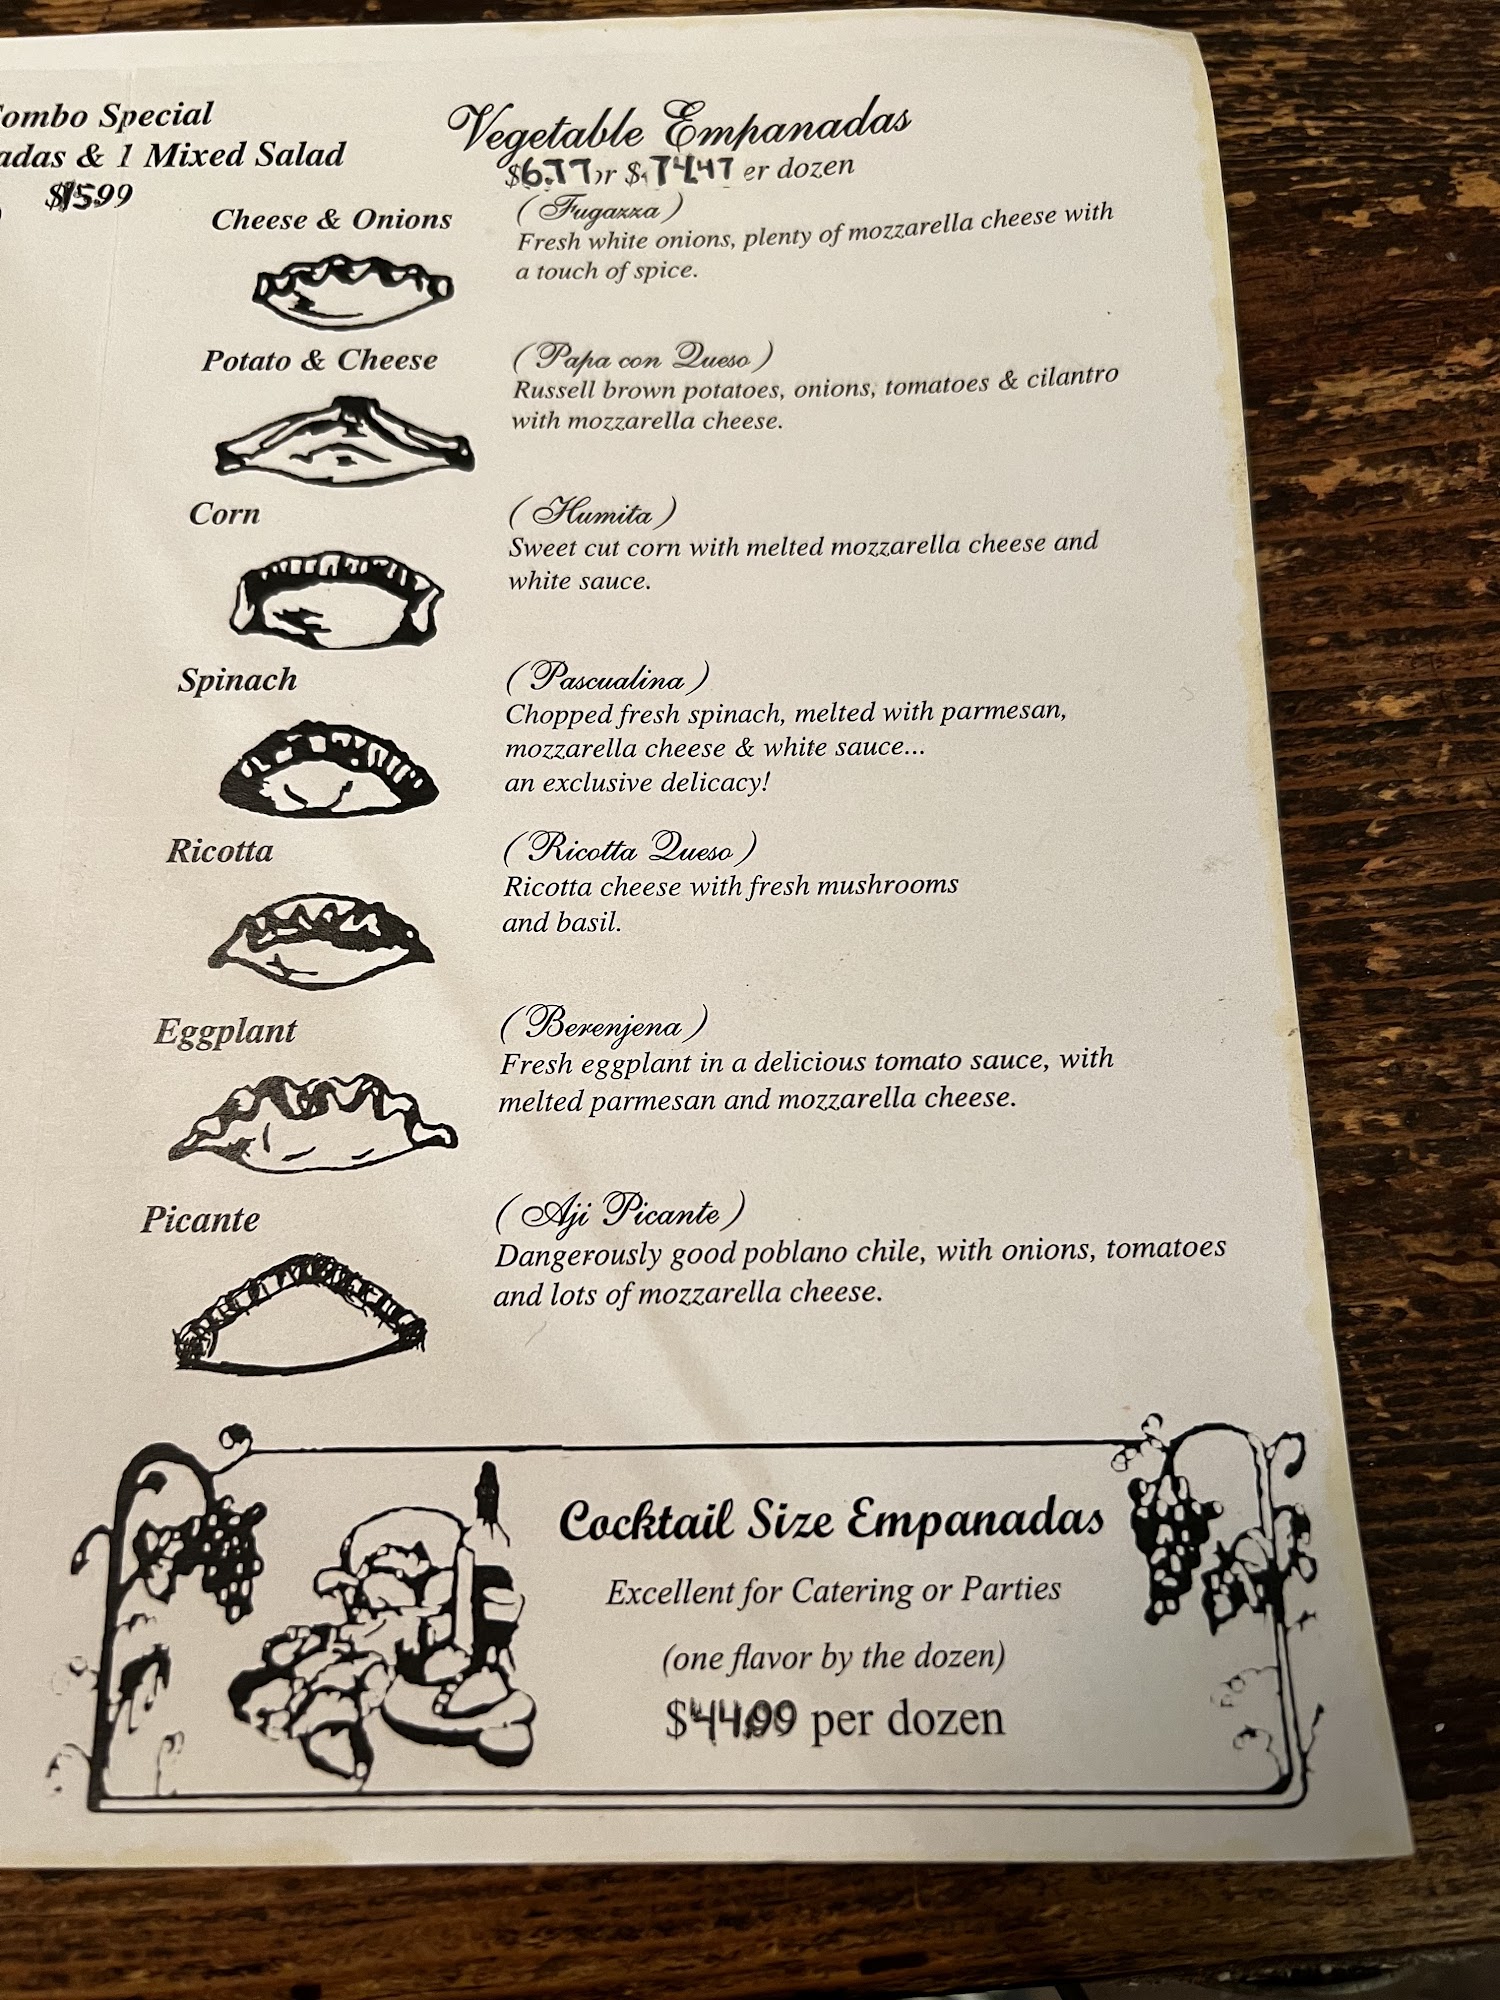 Combo Special
adas & 1 Mixed Salad
$15.99
Vegetable Empanadas
$6.77 or $74.47 er dozen
Cheese & Onions
(Fugazza)
Fresh white onions, plenty of mozzarella cheese with
a touch of spice.
Potato & Cheese
(Papa con Queso)
Russell brown potatoes, onions, tomatoes & cilantro
with mozzarella cheese.
Corn
(Humita)
Sweet cut corn with melted mozzarella cheese and
white sauce.
Spinach
(Pascualina)
Chopped fresh spinach, melted with parmesan,
mozzarella cheese & white sauce...
an exclusive delicacy!
Ricotta
(Ricotta Queso)
Ricotta cheese with fresh mushrooms
and basil.
Eggplant
(Berenjena)
Fresh eggplant in a delicious tomato sauce, with
melted parmesan and mozzarella cheese.
Picante
(Aji Picante)
Dangerously good poblano chile, with onions, tomatoes
and lots of mozzarella cheese.
Cocktail Size Empanadas
Excellent for Catering or Parties
(one flavor by the dozen)
$44.99 per dozen